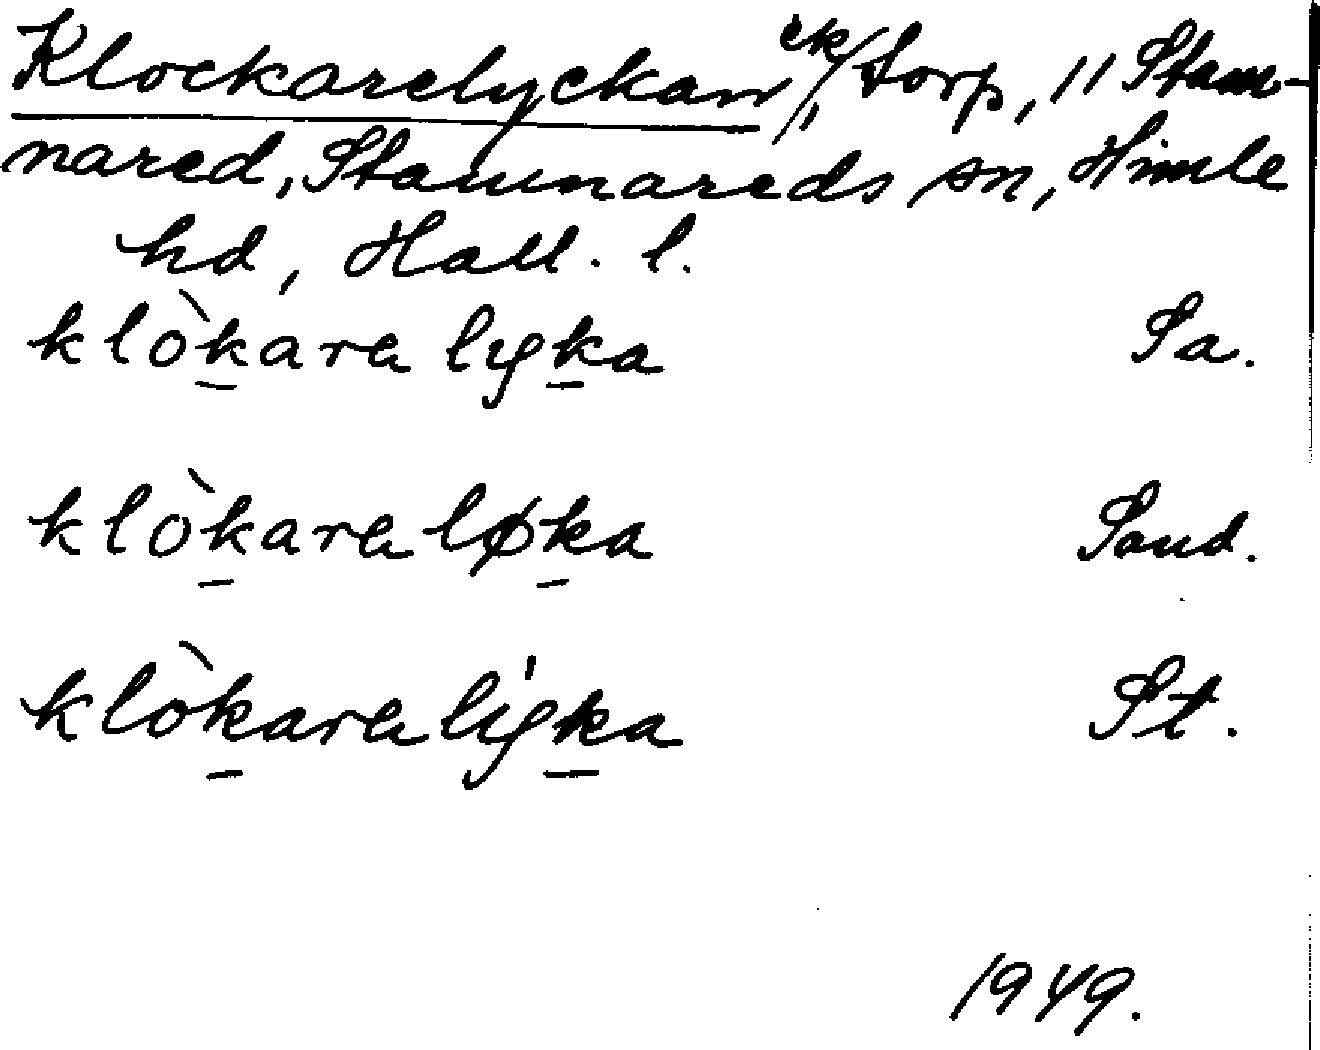 Klockarelyckan ek/ torp, 11 Stam-
nared, Stamnareds sn, Himle
hd, Hall. l.
klòkara lyka Sa.
klòkara løka Sand.
klòkara lýka St.
1949.